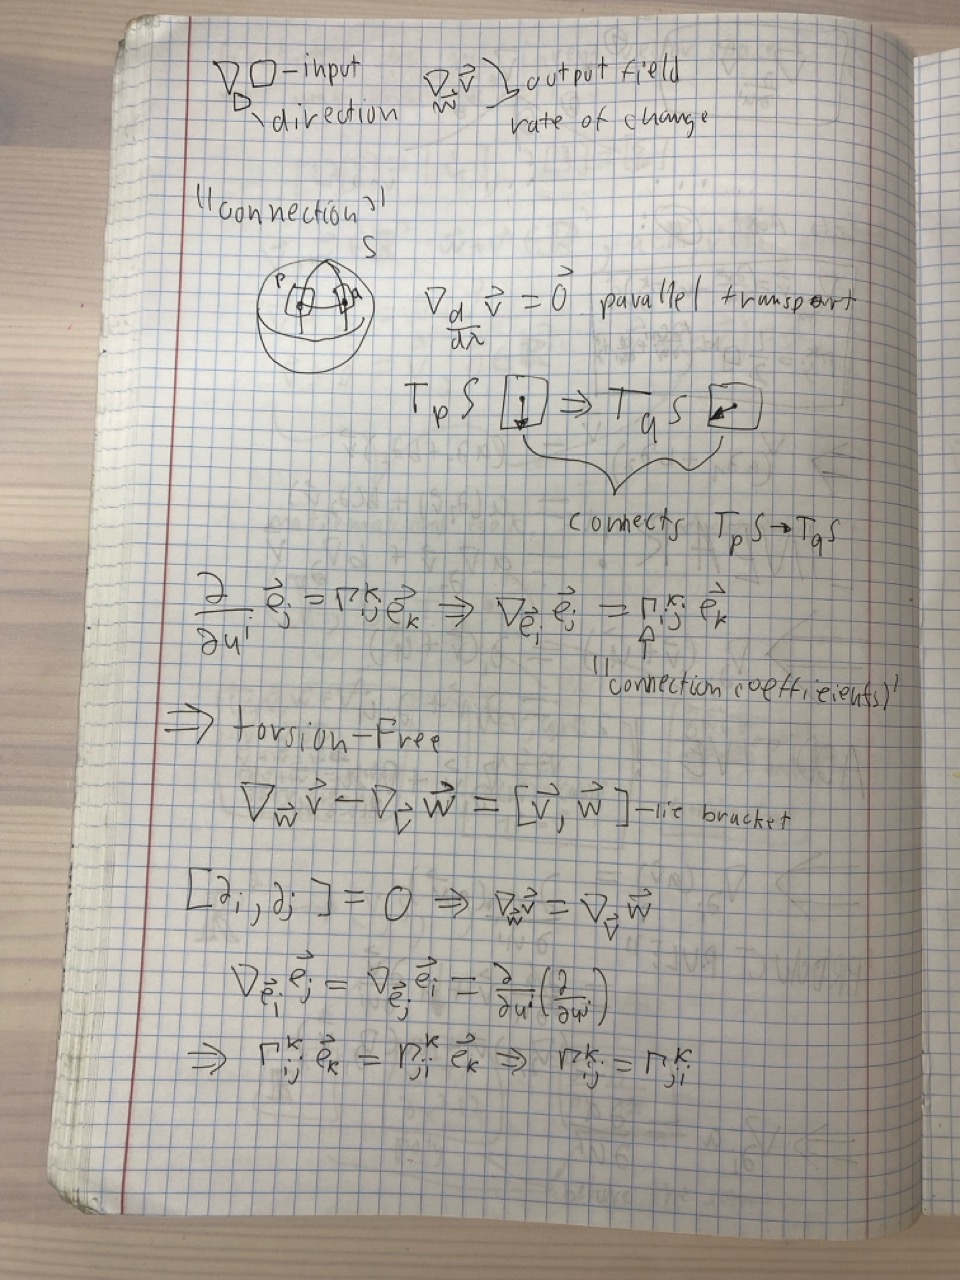 ∇_□ □ – input
direction
∇_w⃗ v⃗ } output field
rate of change
"connection"
S
p q
∇_{d/dλ} v⃗ = 0⃗ parallel transport
T_p S ⇒ T_q S
connects T_p S → T_q S
∂/∂u^i e⃗_j = Γ^k_ij e⃗_k ⇒ ∇_{e⃗_i} e⃗_j = Γ^k_ij e⃗_k
"connection coefficients"
⇒ torsion-Free
∇_w⃗ v⃗ – ∇_v⃗ w⃗ = [v⃗, w⃗] – lie bracket
[∂_i, ∂_j] = 0 ⇒ ∇_w⃗ v⃗ = ∇_v⃗ w⃗
∇_{e⃗_i} e⃗_j = ∇_{e⃗_j} e⃗_i = ∂/∂u^i (∂/∂u^j)
⇒ Γ^k_ij e⃗_k = Γ^k_ji e⃗_k ⇒ Γ^k_ij = Γ^k_ji